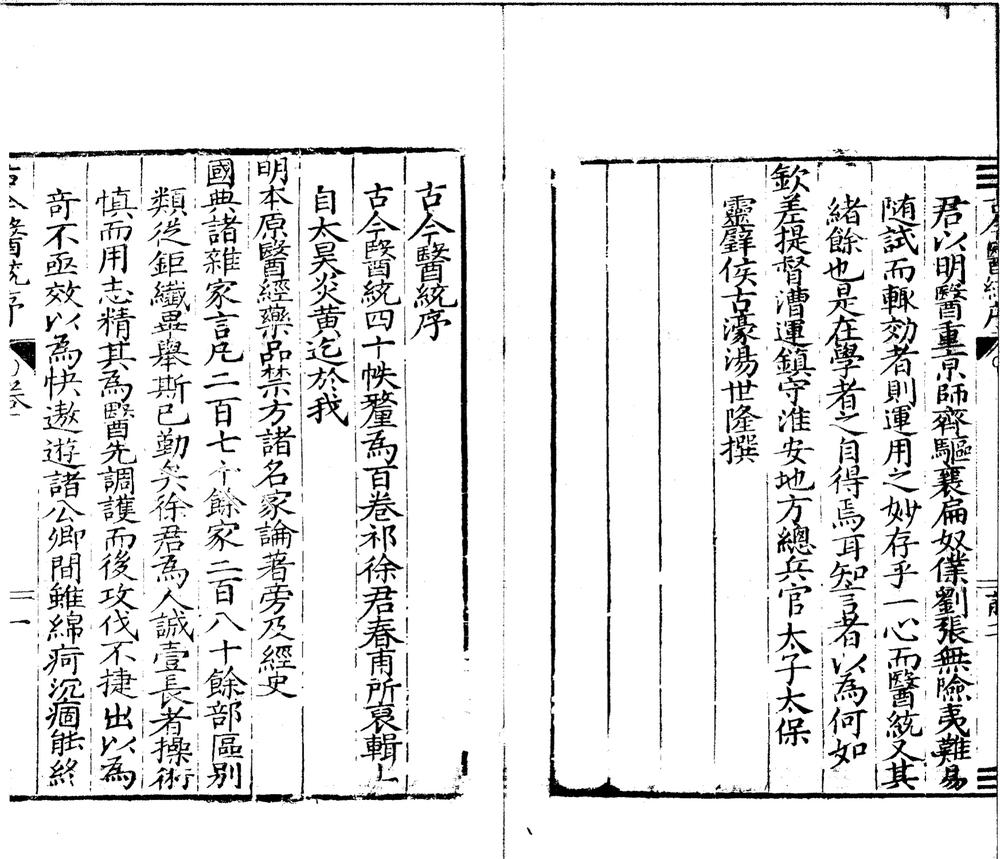 君以明醫重京師齊驅襄扁奴僕劉張無險夷難易
随試而輙効者則運用之妙存乎一心而醫統又其
緒餘也是在學者之自得焉耳知言者以為何如
欽差提督漕運鎮守淮安地方總兵官太子太保
靈璧侯古濠湯世隆撰
古今醫統序
古今醫統四十帙釐為百卷祁徐君春甫所裒輯上
自太昊炎黃迄於我
明本原醫經藥品禁方諸名家論著旁及經史
國典諸雜家言凡二百七十餘家二百八十餘部區別
類從鉅纖畢舉斯已勤矣徐君為人誠壹長者操術
慎而用志精其為醫先調護而後攻伐不捷出以為
奇不亟效以為快遨遊諸公卿間雖綿疴沉痼能終
古今醫統序
卷一